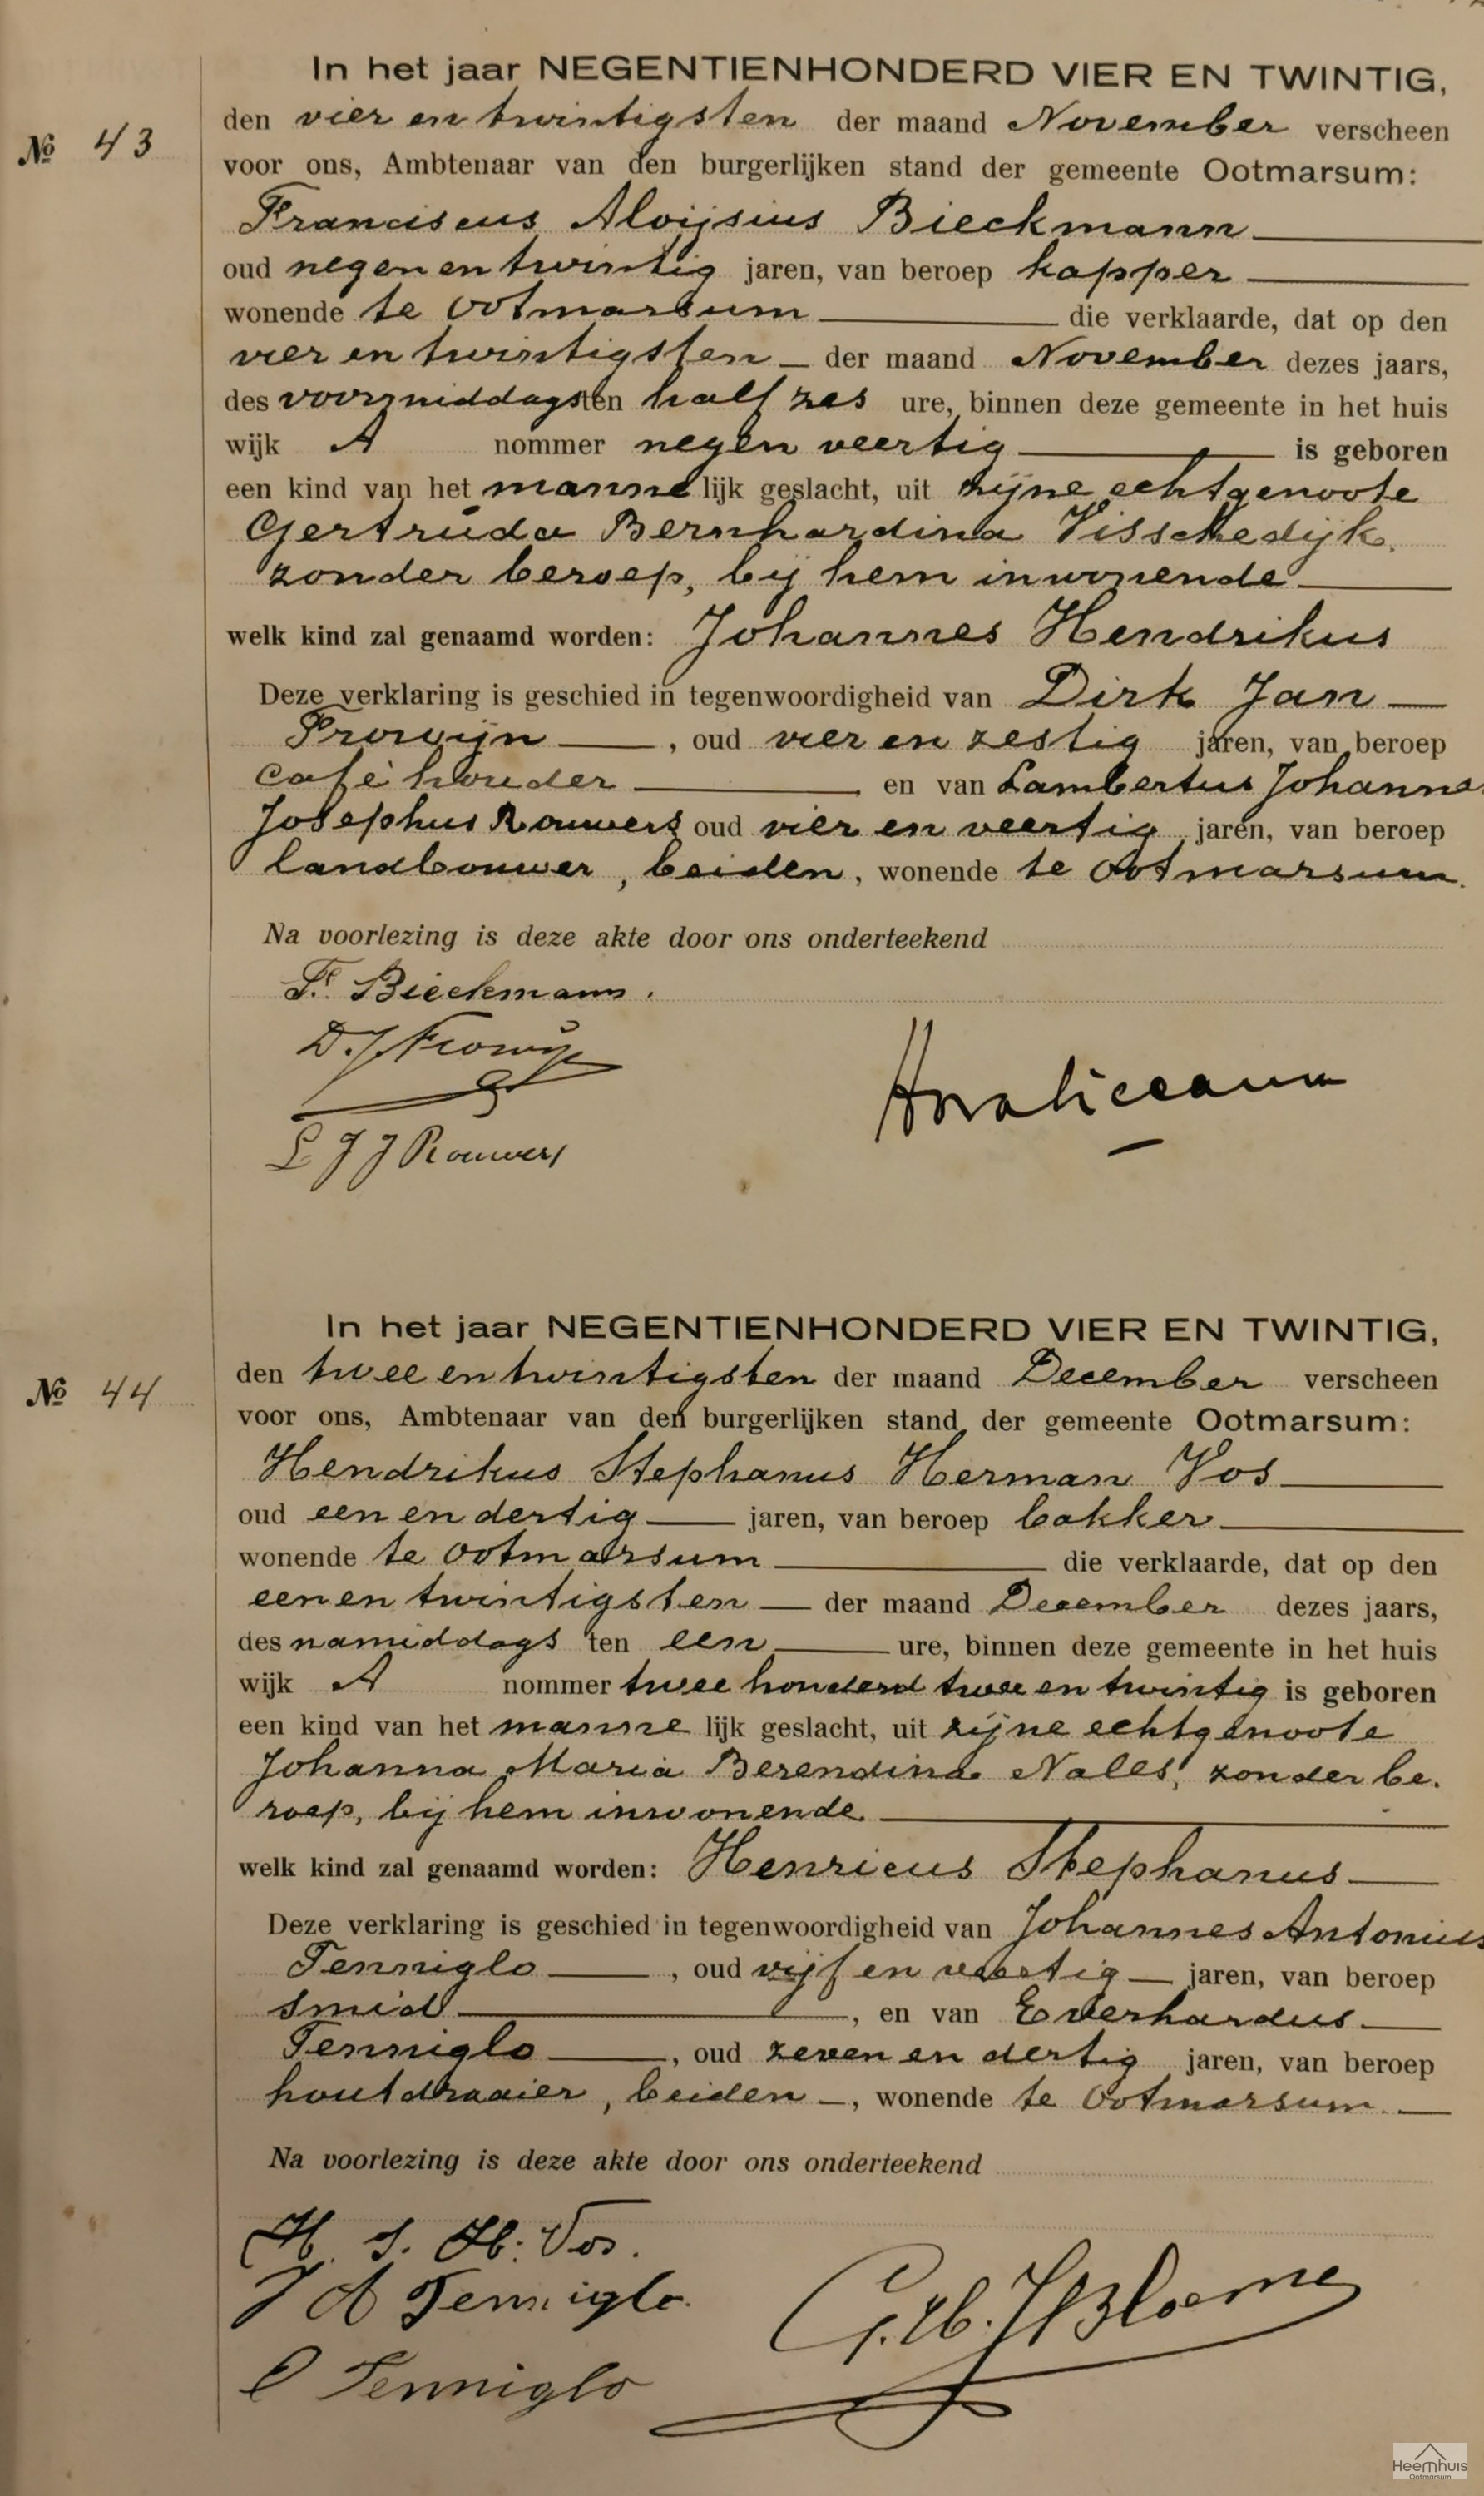 In het jaar NEGENTIENHONDERD VIER EN TWINTIG,
den vier en twintigsten der maand November verscheen
№ 43
voor ons, Ambtenaar van den burgerlijken stand der gemeente Ootmarsum:
Franciscus Aloijsius Bieckmann
oud negen en twintig jaren, van beroep kapper
wonende te Ootmarsum die verklaarde, dat op den
vier en twintigsten der maand November dezes jaars,
des voormiddags ten half zes ure, binnen deze gemeente in het huis
wijk A nommer negen veertig is geboren
een kind van het mannelijk geslacht, uit zijne echtgenoote
Gertruda Bernhardina Visschedijk,
zonder beroep, bij hem inwonende
welk kind zal genaamd worden: Johannes Hendrikus
Deze verklaring is geschied in tegenwoordigheid van Dirk Jan
Frowijn, oud vier en zestig jaren, van beroep
caféhouder en van Lambertus Johannes
Josephus Rouwers oud vier en veertig jaren, van beroep
landbouwer, beiden, wonende te Ootmarsum.
Na voorlezing is deze akte door ons onderteekend
F. Bieckmann.
D. J. Frowijn
L J J Rouwers
In het jaar NEGENTIENHONDERD VIER EN TWINTIG,
den twee en twintigsten der maand December verscheen
№ 44
voor ons, Ambtenaar van den burgerlijken stand der gemeente Ootmarsum:
Hendrikus Stephanus Herman Vos
oud een en dertig jaren, van beroep bakker
wonende te Ootmarsum die verklaarde, dat op den
een en twintigsten der maand December dezes jaars,
des namiddags ten een ure, binnen deze gemeente in het huis
wijk A nommer twee honderd twee en twintig is geboren
een kind van het mannelijk geslacht, uit zijne echtgenoote
Johanna Maria Berendina Nales, zonder be-
roep, bij hem inwonende
welk kind zal genaamd worden: Henricus Stephanus
Deze verklaring is geschied in tegenwoordigheid van Johannes Antonius
Tenniglo, oud vijf en veertig jaren, van beroep
smid, en van Everhardus
Tenniglo, oud zeven en dertig jaren, van beroep
houtdraaier, beiden, wonende te Ootmarsum.
Na voorlezing is deze akte door ons onderteekend
H. S. H. Vos.
J A Tenniglo.
E Tenniglo
Heemhuis
Ootmarsum